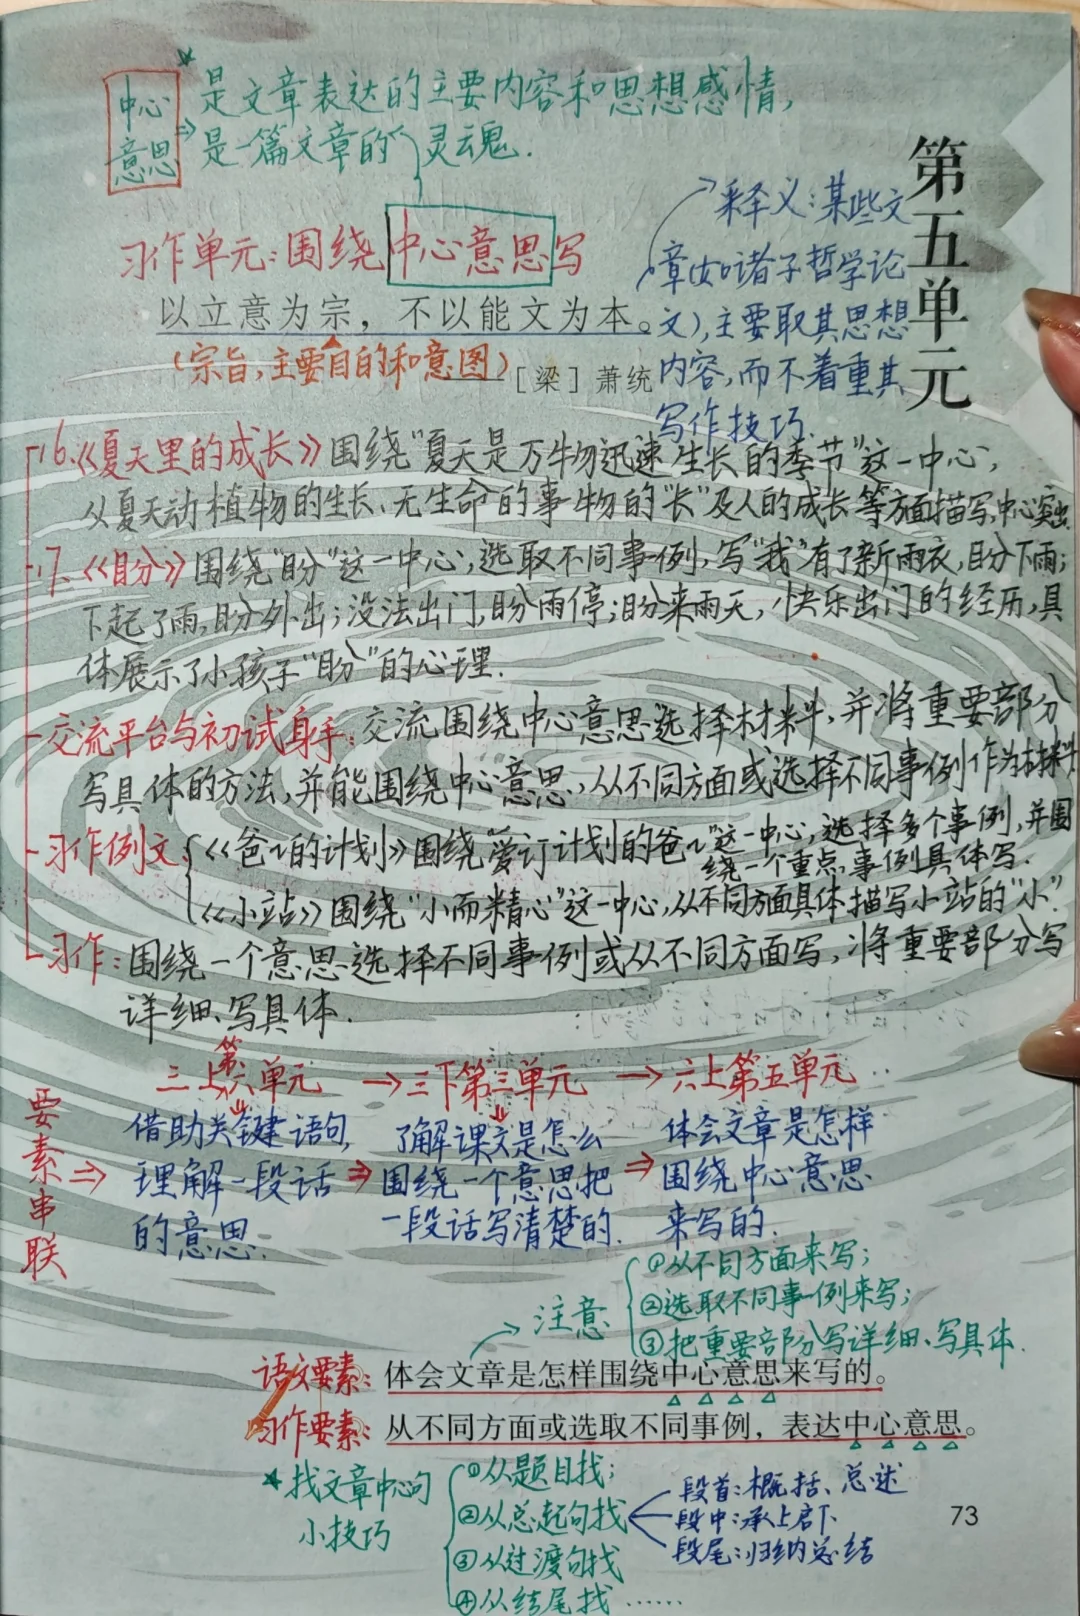 中心
意思
是文章表达的主要内容和思想感情,
是一篇文章的灵魂.
第五单元
习作单元:围绕中心意思写
以立意为宗，不以能文为本。
(宗旨,主要目的和意图)
——［梁］萧统
释义:某些文
章(如诸子哲学论
文),主要取其思想
内容,而不着重其
写作技巧.
16.《夏天里的成长》围绕"夏天是万物迅速生长的季节"这一中心,
从夏天动植物的生长、无生命的事物的"长"及人的成长等方面描写,中心突出.
17.《盼》围绕"盼"这一中心,选取不同事例,写"我"有了新雨衣,盼下雨;
下起了雨,盼外出;没法出门,盼雨停;盼来雨天,快乐出门的经历,具
体展示了小孩子"盼"的心理.
交流平台与初试身手:交流围绕中心意思选择材料,并将重要部分
写具体的方法,并能围绕中心意思,从不同方面或选择不同事例作为材料.
习作例文
《爸爸的计划》围绕"爱订计划的爸爸"这一中心,选择多个事例,并围
绕一个重点事例具体写.
《小站》围绕"小而精心"这一中心,从不同方面具体描写小站的"小".
习作:围绕一个意思选择不同事例或从不同方面写,将重要部分写
详细、写具体.
要素串联⇒
三上第六单元→三下第三单元→六上第五单元
借助关键语句,
理解一段话
的意思.
⇒
了解课文是怎么
围绕一个意思把
一段话写清楚的.
⇒
体会文章是怎样
围绕中心意思
来写的.
注意
①从不同方面来写;
②选取不同事例来写;
③把重要部分写详细、写具体.
语文要素:体会文章是怎样围绕中心意思来写的。
习作要素:从不同方面或选取不同事例，表达中心意思。
找文章中心句
小技巧
①从题目找;
②从总起句找
③从过渡句找
④从结尾找……
段首:概括、总述
段中:承上启下
段尾:归纳总结
73